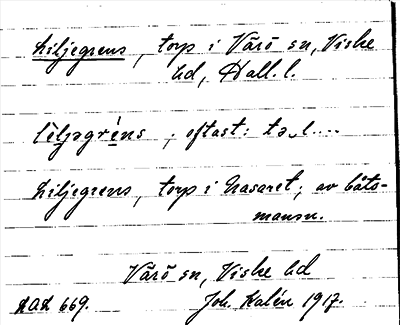 Liljegrens, torp i Värö sn, Viske
hd, Hall. l.
lìljəgréns ; oftast: tə‿l....
Liljegrens, torp i Nasaret; av båts-
mansn.
Värö sn, Viske hd
OAL 669. Joh. Kalén 1917.